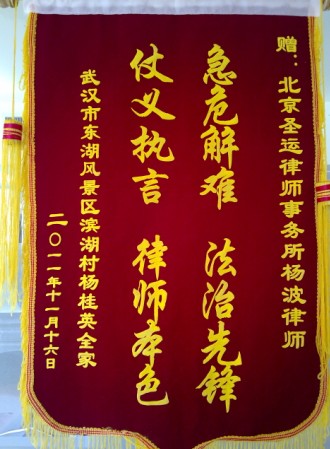 赠：北京圣运律师事务所杨波律师
急危解难 法治先锋
仗义执言 律师本色
武汉市东湖风景区滨湖村杨桂英全家
二〇一一年十一月十六日